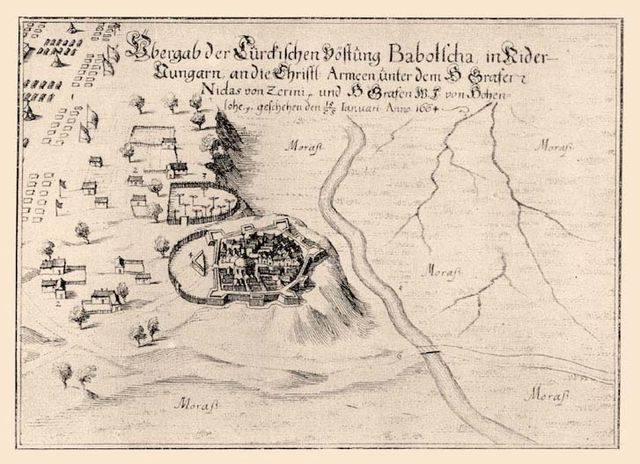 Vbergab der Türckischen Vöstüng Babotscha, in Nider-
Vungarn, an die Christl Armeen unter dem H Grafen
Niclas von Zerini, und H Grafen W. J. von Hohen
lohe, geschehen den Ianuari Anno 1664
Moraß
Moraß
Moraß
Moraß
Moraß
1
2
2
2
6